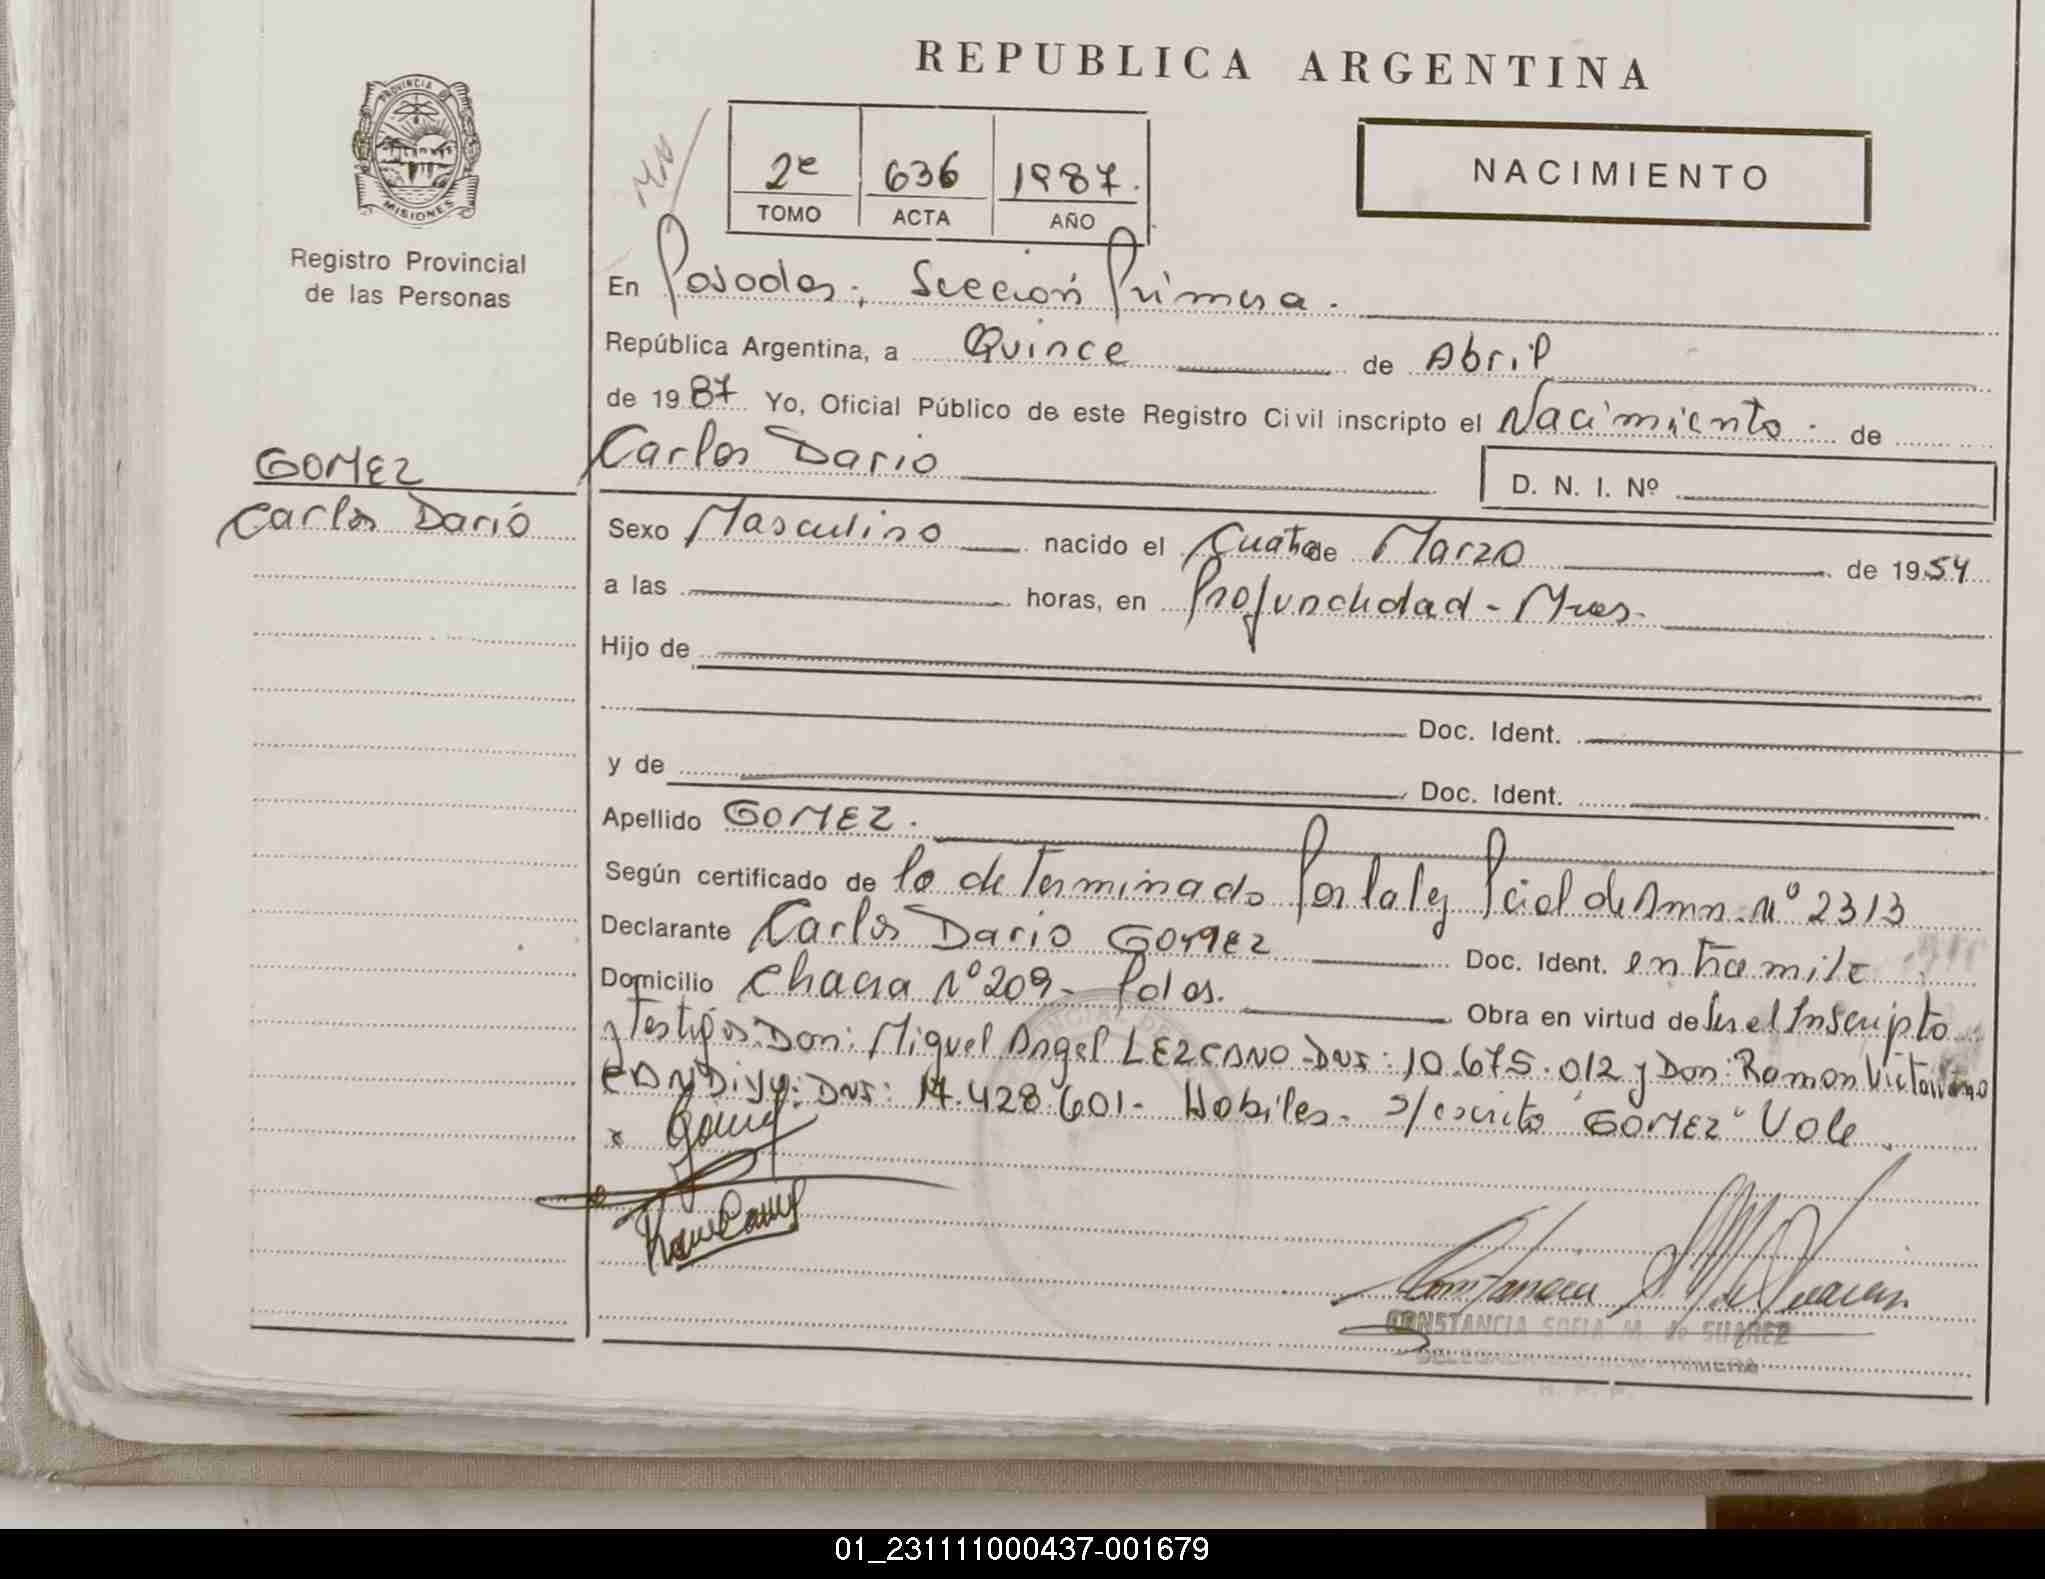 REPUBLICA ARGENTINA
PROVINCIA DE
MISIONES
Registro Provincial
de las Personas
2e 636 1987.
TOMO ACTA AÑO
NACIMIENTO
En Posadas, Sección Primera.
República Argentina, a Quince de Abril
de 1987 Yo, Oficial Público de este Registro Civil inscripto el Nacimiento. de
Carlos Dario
D. N. I. Nº
GOMEZ
Carlos Darió
Sexo Masculino nacido el Cuatro de Marzo de 1954
a las horas, en Profundidad - Mnes.
Hijo de
Doc. Ident.
y de Doc. Ident.
Apellido GOMEZ.
Según certificado de lo determinado Por la ley Pcial de Amn. Nº 2313
Declarante Carlos Dario GOMEZ Doc. Ident. en tramite
Domicilio Chacra Nº 209 - Pdas. Obra en virtud de Ser el Inscripto
y Testigos: Don: Miguel Angel LEZCANO - DNI: 10.675.012 y Don: Ramon Victoriano
DNI: 17.428.601 - Habiles - s/escrito "GOMEZ" Vale.
x
CONSTANCIA SOFIA M. de SUAREZ
DELEGADA SECCION PRIMERA
R. P. P.
01_231111000437-001679